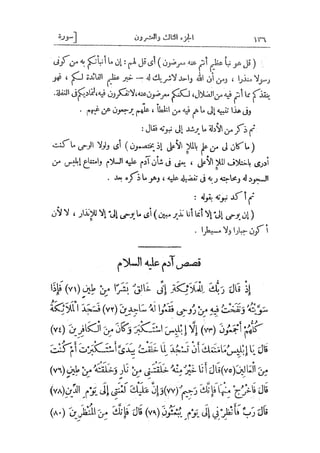 ١٣٦ الجزء الثالث والعشرون [سورة
( قل هو نبأ عظيم أنتم عنه معرضون ) أى قل لهم : إن ما أنبأتكم به من كونى
رسولا منذرا ، ومن أن الله واحد لاشريك له — خبر عظيم الفائدة لكم ، فهو
ينقذكم مما أنتم فيه من الضلال، لكنكم معرضون عنه، لاتفكرون فيه، لتماديكم فى الغفلة.
وفى هذا تنبيه إلى ماهم فيه من الخطأ ، علّهم يرجعون عن غيهم .
ثم ذكر من الأدلة ما يرشد إلى نبوته فقال :
( ما كان لى من علم بالملإ الأعلى إذ يختصمون ) أى ولولا الوحى ما كنت
أدرى باختلاف الملإ الأعلى ، يعنى فى شأن آدم عليه السلام وامتناع إبليس من
السجود له ومحاجته ربه فى تفضيله عليه ، وهو ما ذكره بعد .
ثم أكد نبوته بقوله :
( إن يوحى إلىّ إلا أنما أنا نذير مبين ) أى ما يوحى إلىّ إلا للإنذار ، لا لأن
أكون جبارا ولا مسيطرا .
قصص آدم عليه السلام
إِذْ قَالَ رَبُّكَ لِلْمَلَائِكَةِ إِنِّى خَالِقٌ بَشَرًا مِنْ طِينٍ (٧١) فَإِذَا
سَوَّيْتُهُ وَنَفَخْتُ فِيهِ مِنْ رُوحِى فَقَعُوا لَهُ سَاجِدِينَ (٧٢) فَسَجَدَ الْمَلَائِكَةُ
كُلُّهُمْ أَجْمَعُونَ (٧٣) إِلَّا إِبْلِيسَ اسْتَكْبَرَ وَكَانَ مِنَ الْكَافِرِينَ (٧٤)
قَالَ يَا إِبْلِيسُ مَامَنَعَكَ أَنْ تَسْجُدَ لِمَا خَلَقْتُ بِيَدَىَّ أَسْتَكْبَرْتَ أَمْ كُنْتَ
مِنَ الْعَالِينَ (٧٥) قَالَ أَنَا خَيْرٌ مِنْهُ خَلَقْتَنِى مِنْ نَارٍ وَخَلَقْتَهُ مِنْ طِينٍ (٧٦)
قَالَ فَاخْرُجْ مِنْهَا فَإِنَّكَ رَجِيمٌ (٧٧) وَإِنَّ عَلَيْكَ لَعْنَتِى إِلَى يَوْمِ الدِّينِ (٧٨)
قَالَ رَبِّ فَأَنْظِرْنِى إِلَى يَوْمِ يُبْعَثُونَ (٧٩) قَالَ فَإِنَّكَ مِنَ الْمُنْظَرِينَ (٨٠)